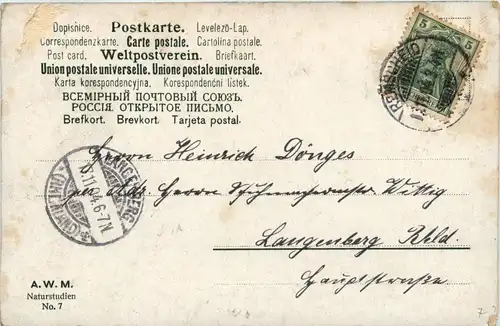 Dopisnice. Postkarte. Levelező-Lap.
Correspondenzkarte. Carte postale. Cartolina postale.
Post card. Weltpostverein. Briefkaart.
Union postale universelle. Unione postale universale.
Karta korespondencyjna. Korespondenční lístek.
ВСЕМІРНЫЙ ПОЧТОВЫЙ СОЮЗЪ.
РОССІЯ. ОТКРЫТОЕ ПИСЬМО.
Brefkort. Brevkort. Tarjeta postal.
5 5
Herrn Heinrich Dönges
LANGENBERG
(RHEINLAND)
13.11.04.6-7N.
per adr Herrn Wittig
Langenberg Rhld.
Hauptstraße.
A.W.M.
Naturstudien
No. 7